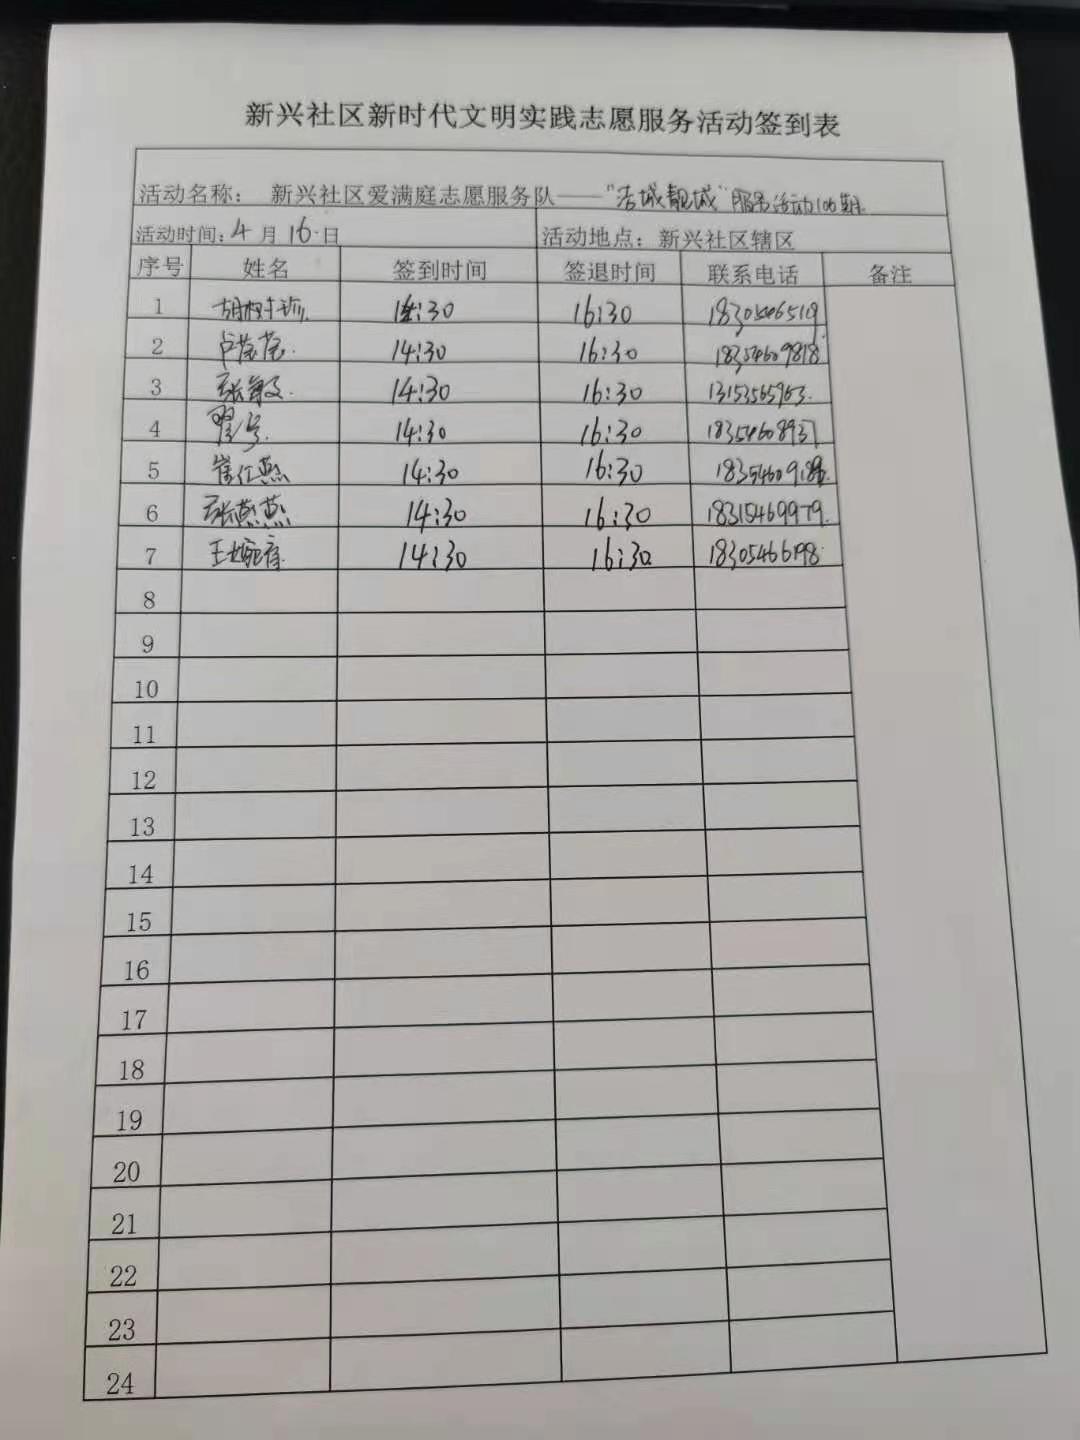 新兴社区新时代文明实践志愿服务活动签到表
活动名称： 新兴社区爱满庭志愿服务队——“洁城靓城”服务活动106期.
活动时间：4月16日 活动地点：新兴社区辖区
序号 姓名 签到时间 签退时间 联系电话 备注
1 胡树珍 14:30 16:30 18305466519
2 卢莲莲 14:30 16:30 18354609818
3 张敏 14:30 16:30 13153565963
4 翟 14:30 16:30 18354608937
5 崔红燕 14:30 16:30
6 张燕燕 14:30 16:30 18315469979
7 王婉 14:30 16:30 18305466198
8
9
10
11
12
13
14
15
16
17
18
19
20
21
22
23
24